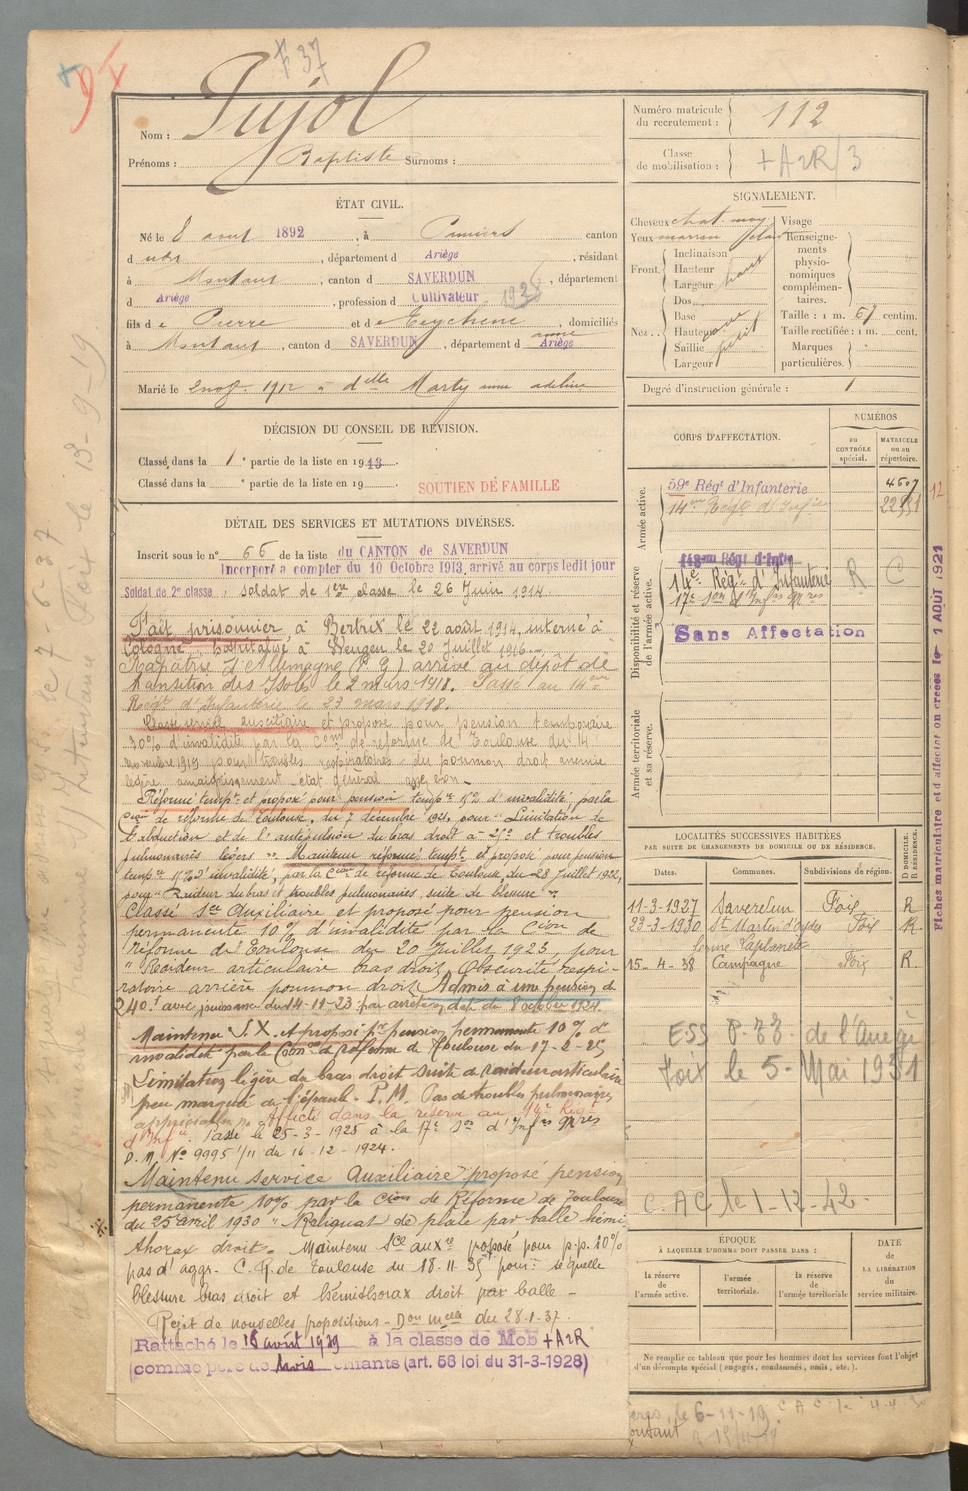 X 37
Nom : Pujol
Prénoms : Baptiste Surnoms :
ÉTAT CIVIL.
Né le 8 aout 1892, à Pamiers canton
d udit, département d Ariège, résidant
à Montaut, canton d SAVERDUN, département
d Ariège, profession d Cultivateur
fils de Pierre et de Teychene anne, domiciliés
à Montaut, canton d SAVERDUN, département d Ariège
Marié le 1912 à delle Marty adeline
DÉCISION DU CONSEIL DE RÉVISION.
Classé dans la 1e partie de la liste en 1913.
Classé dans la e partie de la liste en 19
SOUTIEN DE FAMILLE
DÉTAIL DES SERVICES ET MUTATIONS DIVERSES.
Inscrit sous le n° 66 de la liste du CANTON de SAVERDUN
Incorporé à compter du 10 Octobre 1913, arrivé au corps ledit jour
Soldat de 2e classe, soldat de 1ère classe le 26 Juin 1914
Fait prisonnier, à Bertrix le 22 août 1914, interné à
Cologne, hospitalisé à Wengen le 20 Juillet 1916.
Rapatrié d'Allemagne (P. G) arrivé au dépôt de
transition des Isolés le 2 mars 1918. Passé au 14ème
Régt d'Infanterie le 23 mars 1918.
Classé service auxiliaire et proposé pour pension temporaire
30% d'invalidité par la Com de réforme de Toulouse du 14
novembre 1919 pour troubles respiratoires du poumon droit
légère amaigrissement état général assez bon.
Réformé tempre et proposé pour pension tempre 15% d'invalidité, par la
Cion de réforme de Toulouse, du 7 décembre 1921, pour "Limitation de
l'abduction et de l'antépulsion du bras droit et troubles
pulmonaires légers". Maintenu réformé tempre et proposé pour pension
tempre 15% d'invalidité, par la Cion de réforme de Toulouse, du 28 Juillet 1922,
pour "Raideur du bras et troubles pulmonaires suite de blessure".
Classé Sce Auxiliaire et proposé pour pension
permanente 10% d'invalidité par la Cion de
réforme de Toulouse du 20 Juillet 1923, pour
"Raideur articulaire bras droit, Obscurité respi-
ratoire arrière poumon droit. Admis à une pension de
240f avec jouissance du 14-11-23 par arrêté en date du 8 octobre 1924.
Maintenu S.X. et proposé pr pension permanente 10% d'
invalidité par la Cion de Réforme de Toulouse du 17-2-25
Limitation légère du bras droit suite de raideur articulaire
peu marquée de l'épaule. P.M. Pas de troubles pulmonaires
appréciables. Affecté dans la réserve au 14e Régt
d'Infie. Passé le 25-3-1925 à la 17e Son d'Infrs Mres
D.M. No 9995 1/11 du 16-12-1924.
Maintenu service Auxiliaire proposé pension
permanente 10% par la Cion de Réforme de Toulouse
du 25 avril 1930 "Reliquat de plaie par balle hémi-
thorax droit". Maintenu Sce auxre proposé pour p.p. 10%
pas d'aggr. C.R. de Toulouse du 18-11-35 pour: séquelle
blessure bras droit et hémithorax droit par balle -
Rejet de nouvelles propositions - Don Melle du 28-1-37.
Rattaché le 16 août 1929 à la classe de Mob + A2R
(comme père de trois enfants (art. 58 loi du 31-3-1928)
Numéro matricule du recrutement : 112
Classe de mobilisation : + A2R/3
SIGNALEMENT.
Cheveux chat. moy. Visage
Yeux marron clair Renseignements physionomiques complémentaires.
Front. Inclinaison
Hauteur
Largeur
Nez. Dos
Base
Hauteur
Saillie petit
Largeur
Taille : 1 m. 67 centim.
Taille rectifiée : 1 m. cent.
Marques particulières.
Degré d'instruction générale : 1
CORPS D'AFFECTATION.
NUMÉROS
AU CONTRÔLE spécial.
MATRICULE ou au répertoire.
Armée active.
59e Régt d'Infanterie 4607
14ème Régt d'Infie
Disponibilité et réserve de l'armée active.
14e Régt d'Infanterie R C
17e Son d'Infrs Mres
Sans Affectation
Armée territoriale et sa réserve.
Fiches matriculaire et d'affectation créées le 1 AOUT 1921
12
LOCALITÉS SUCCESSIVES HABITÉES
PAR SUITE DE CHANGEMENTS DE DOMICILE OU DE RÉSIDENCE.
Dates. Communes. Subdivisions de région. D DOMICILE. R RÉSIDENCE.
11-3-1927 Saverdun Foix R
23-3-1930 St Martin d'Oydes Foix R
15-4-38 Campagne Foix R.
ESS P-73- de l'Ariège
Foix le 5- Mai 1931
C.A.C le 1-12-42-
ÉPOQUE
À LAQUELLE L'HOMME DOIT PASSER DANS :
la réserve de l'armée active.
l'armée territoriale.
la réserve de l'armée territoriale
DATE de LA LIBÉRATION du service militaire.
Ne remplir ce tableau que pour les hommes dont les services font l'objet
d'un décompte spécial (engagés, condamnés, omis, etc.).
le 6-11-19